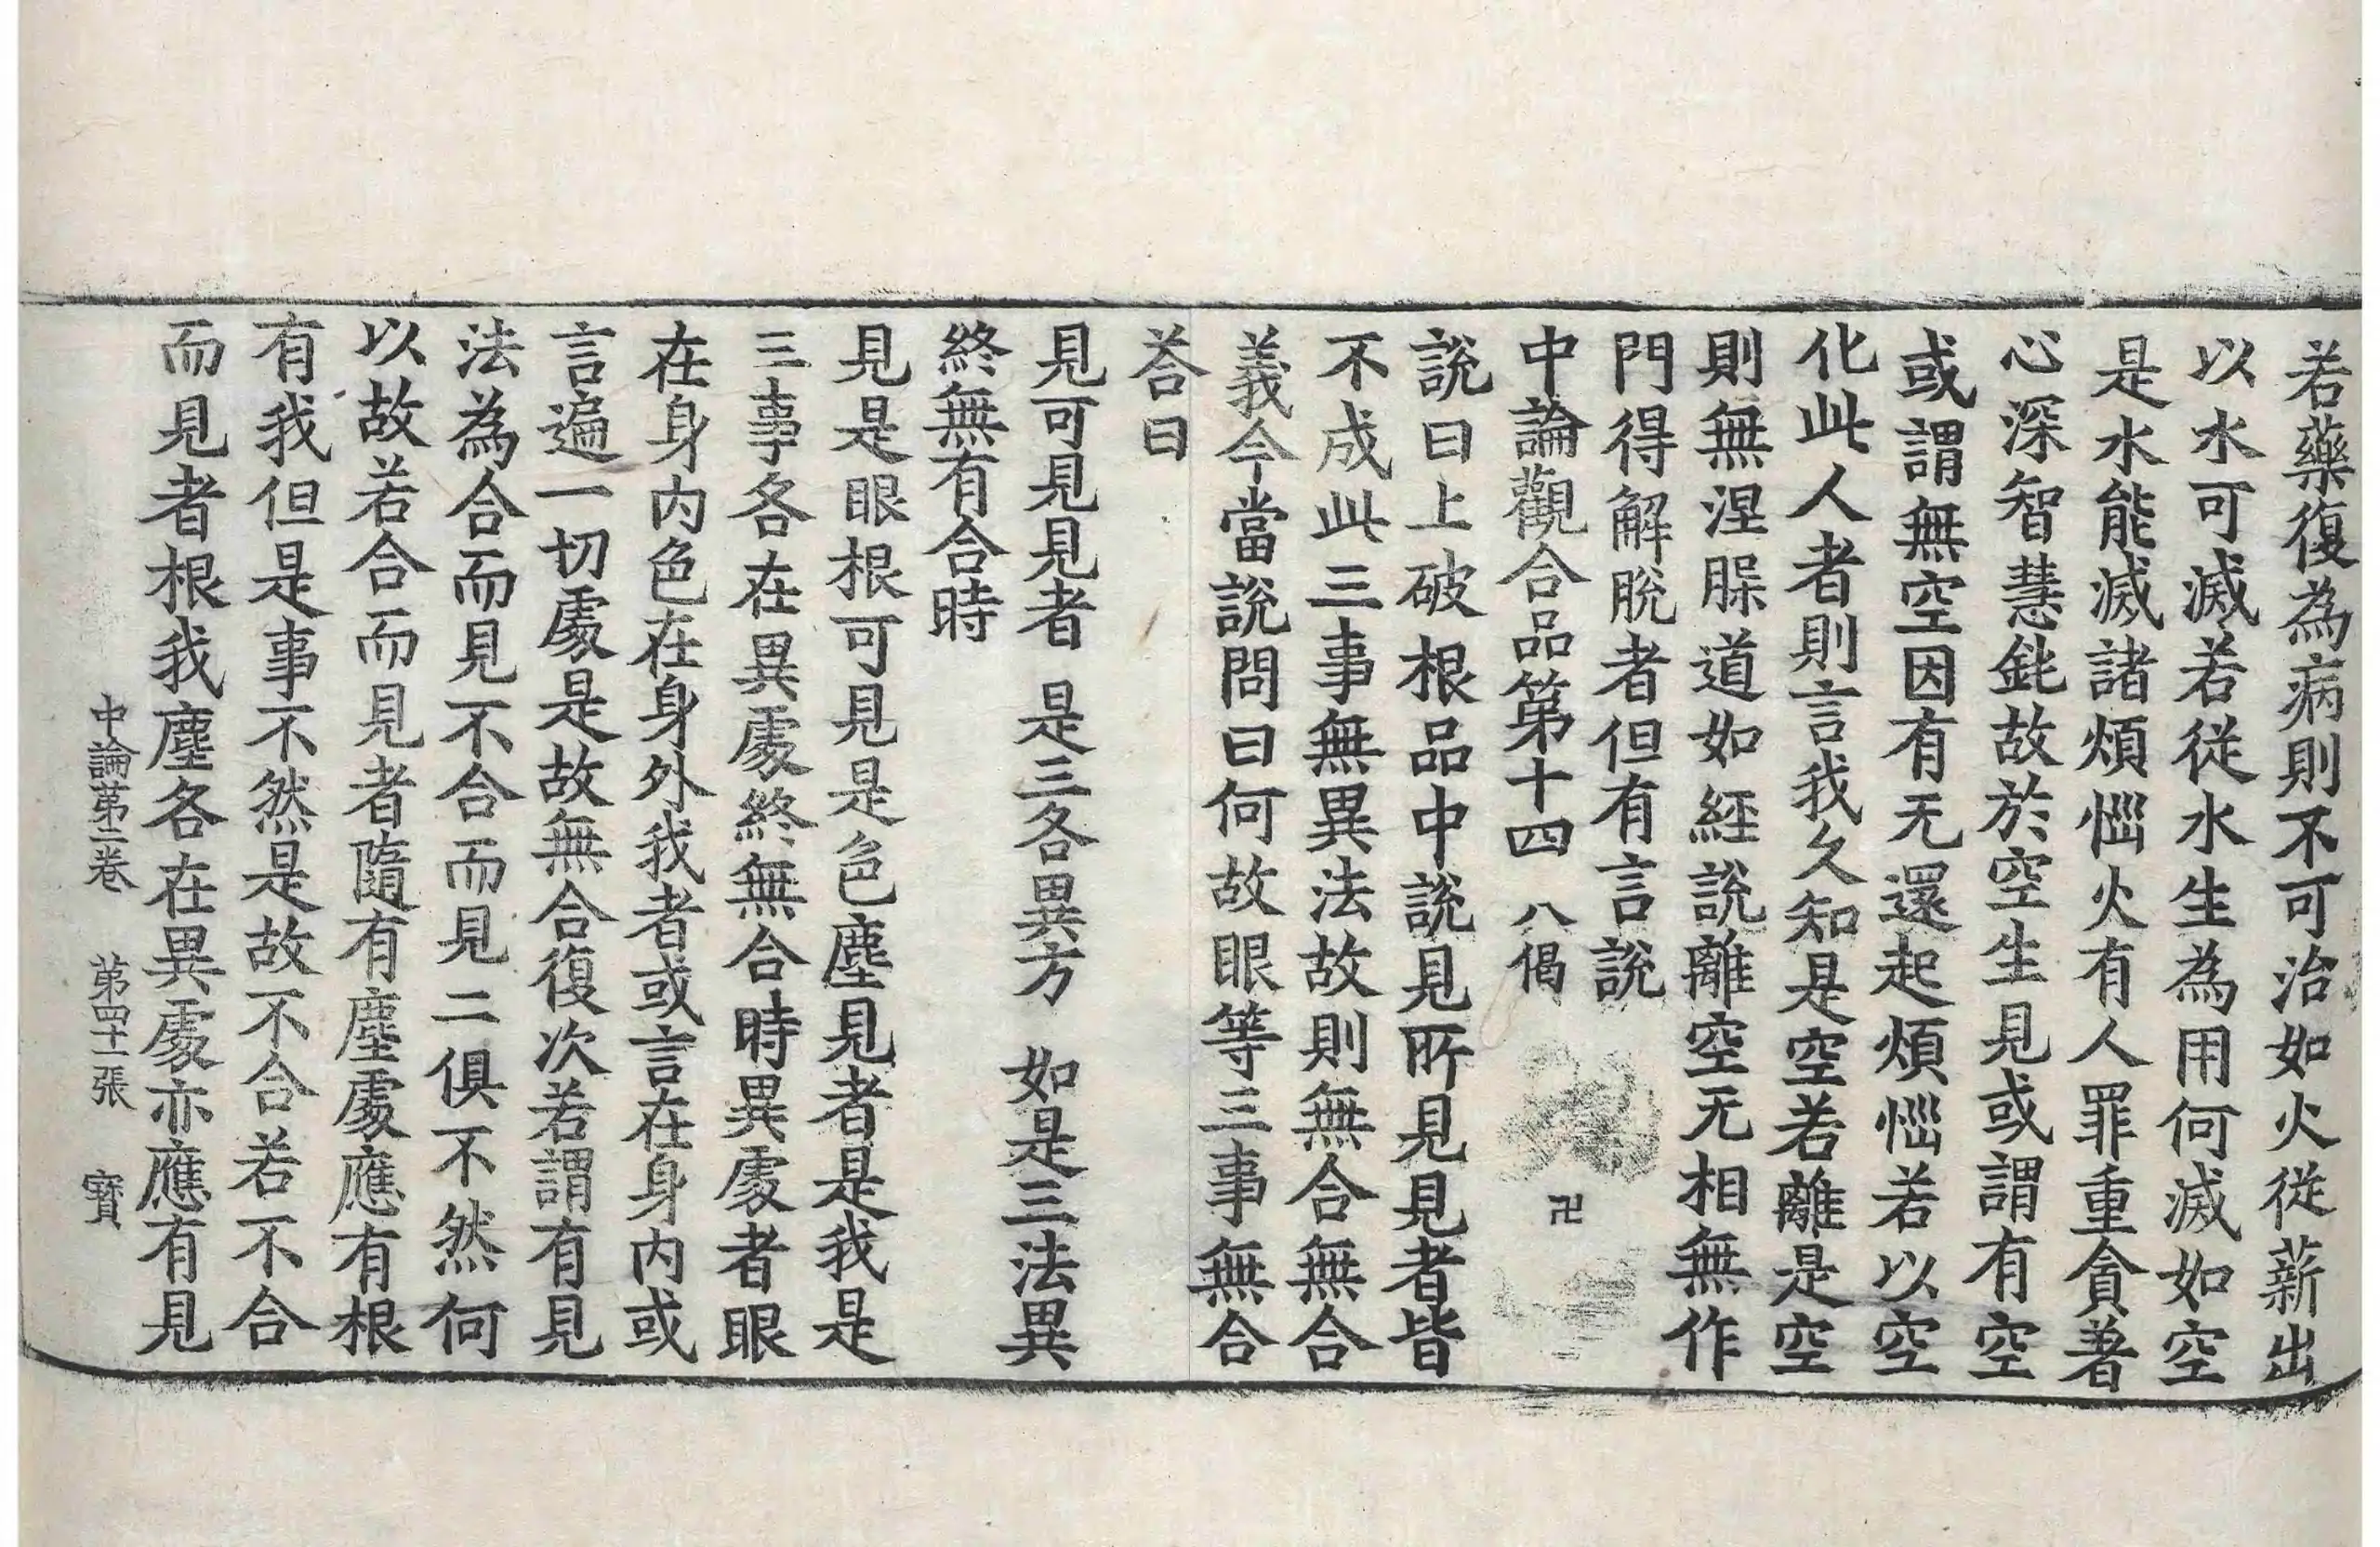 若藥復為病則不可治如火從薪出
以水可滅若從水生為用何滅如空
是水能滅諸煩惱火有人罪重貪著
心深智慧鈍故於空生見或謂有空
或謂無空因有无還起煩惱若以空
化此人者則言我久知是空若離是空
則無涅脲道如經說離空无相無作
門得解脫者但有言說
中論觀合品第十四 八偈 卍
說曰上破根品中說見所見見者皆
不成此三事無異法故則無合無合
義今當說問曰何故眼等三事無合
荅曰
見可見見者 是三各異方 如是三法異
終無有合時
見是眼根可見是色塵見者是我是
三事各在異處終無合時異處者眼
在身內色在身外我者或言在身內或
言遍一切處是故無合復次若謂有見
法為合而見不合而見二俱不然何
以故若合而見者隨有塵處應有根
有我但是事不然是故不合若不合
而見者根我塵各在異處亦應有見
中論第二卷 第四十一張 寳